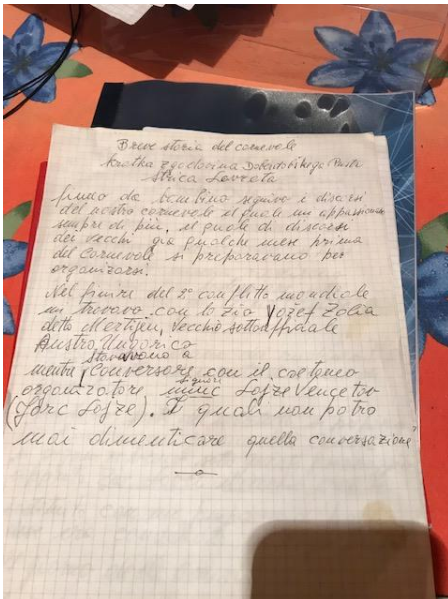 Breve storia del cornevole
kratka zgodovina Doberdobskega Pusta
Strica Lovreta
fimo da bambino seguivo i discorsi
del nostro cornevole il quale mi appassionava
sempre di più, il quale di discorsi
dei vecchi già qualche mese prima
del Cornevole si preparavano per
organizzarsi.
Nel finire del 2° conflitto mondiale
mi trovavo con lo zio Jožef Zolia
detto vecchio sottoufficiale
Austro Ungarico
stavavono a
mentre conversare con il coetaneo
signori
organizzatore Lojze Vencetov
(Jorc Lojze). I quali non potrò
mai dimenticare quella conversazione